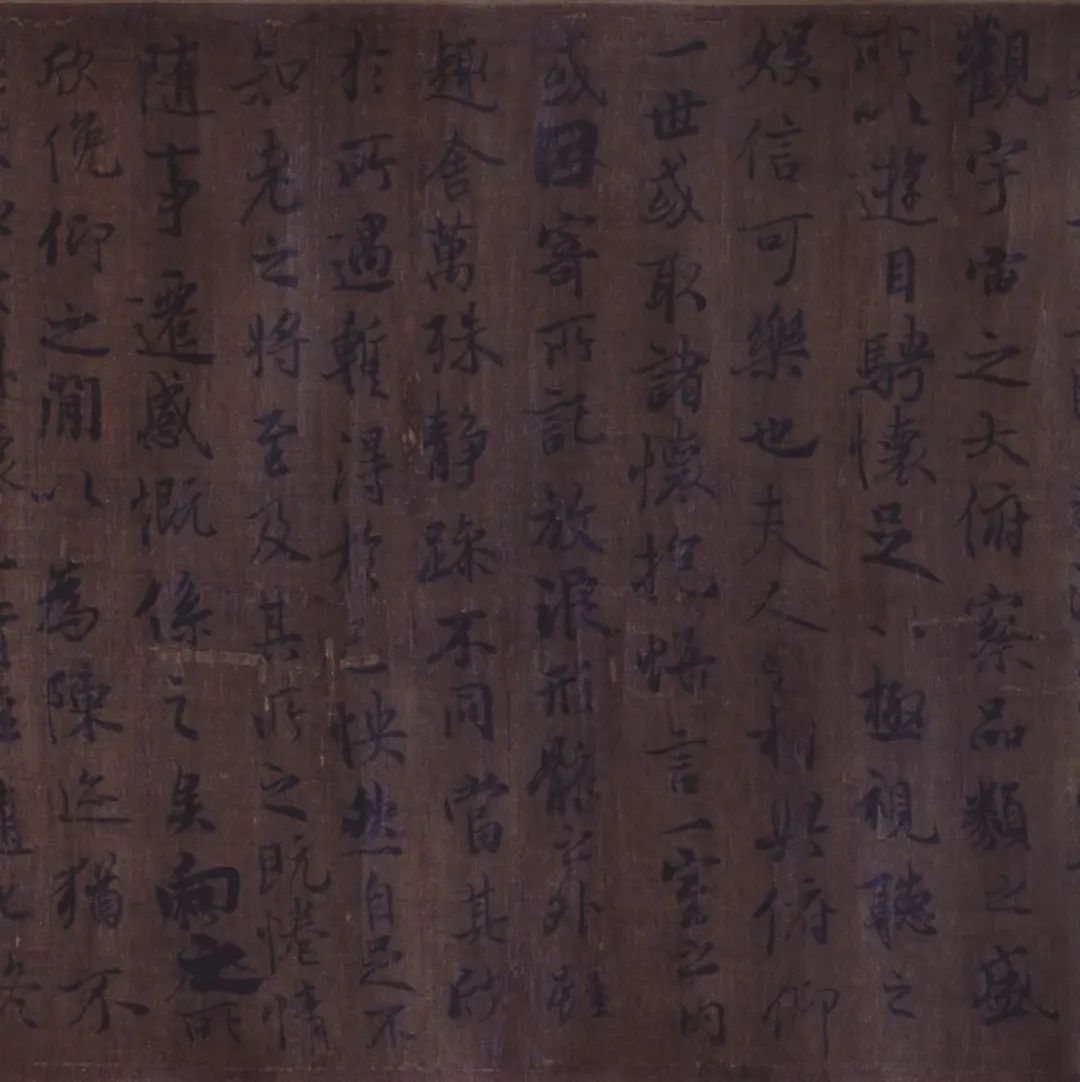 觀宇宙之大俯察品類之盛
所以遊目騁懷足以極視聽之
娛信可樂也夫人之相與俯仰
一世或取諸懷抱悟言一室之內
或因寄所託放浪形骸之外雖
趣舍萬殊静躁不同當其欣
於所遇蹔得於己怏然自足不
知老之將至及其所之既惓情
隨事遷感慨係之矣向之所
欣俛仰之閒以為陳迹猶不